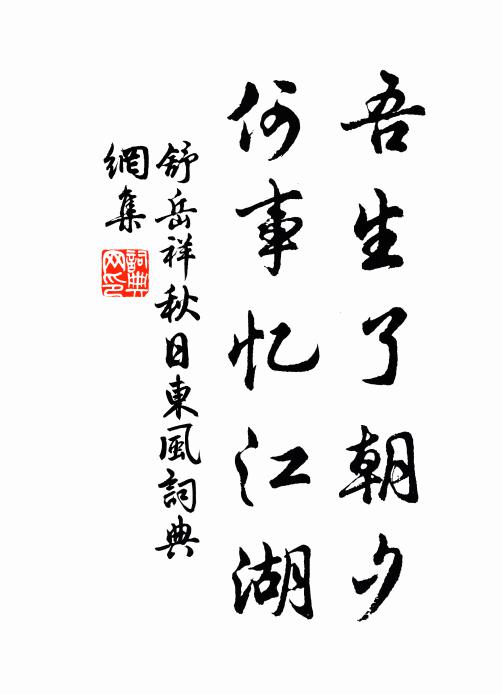 吾生了朝夕
何事忆江湖
舒岳祥秋日東風詞典
網集
詞典
网印